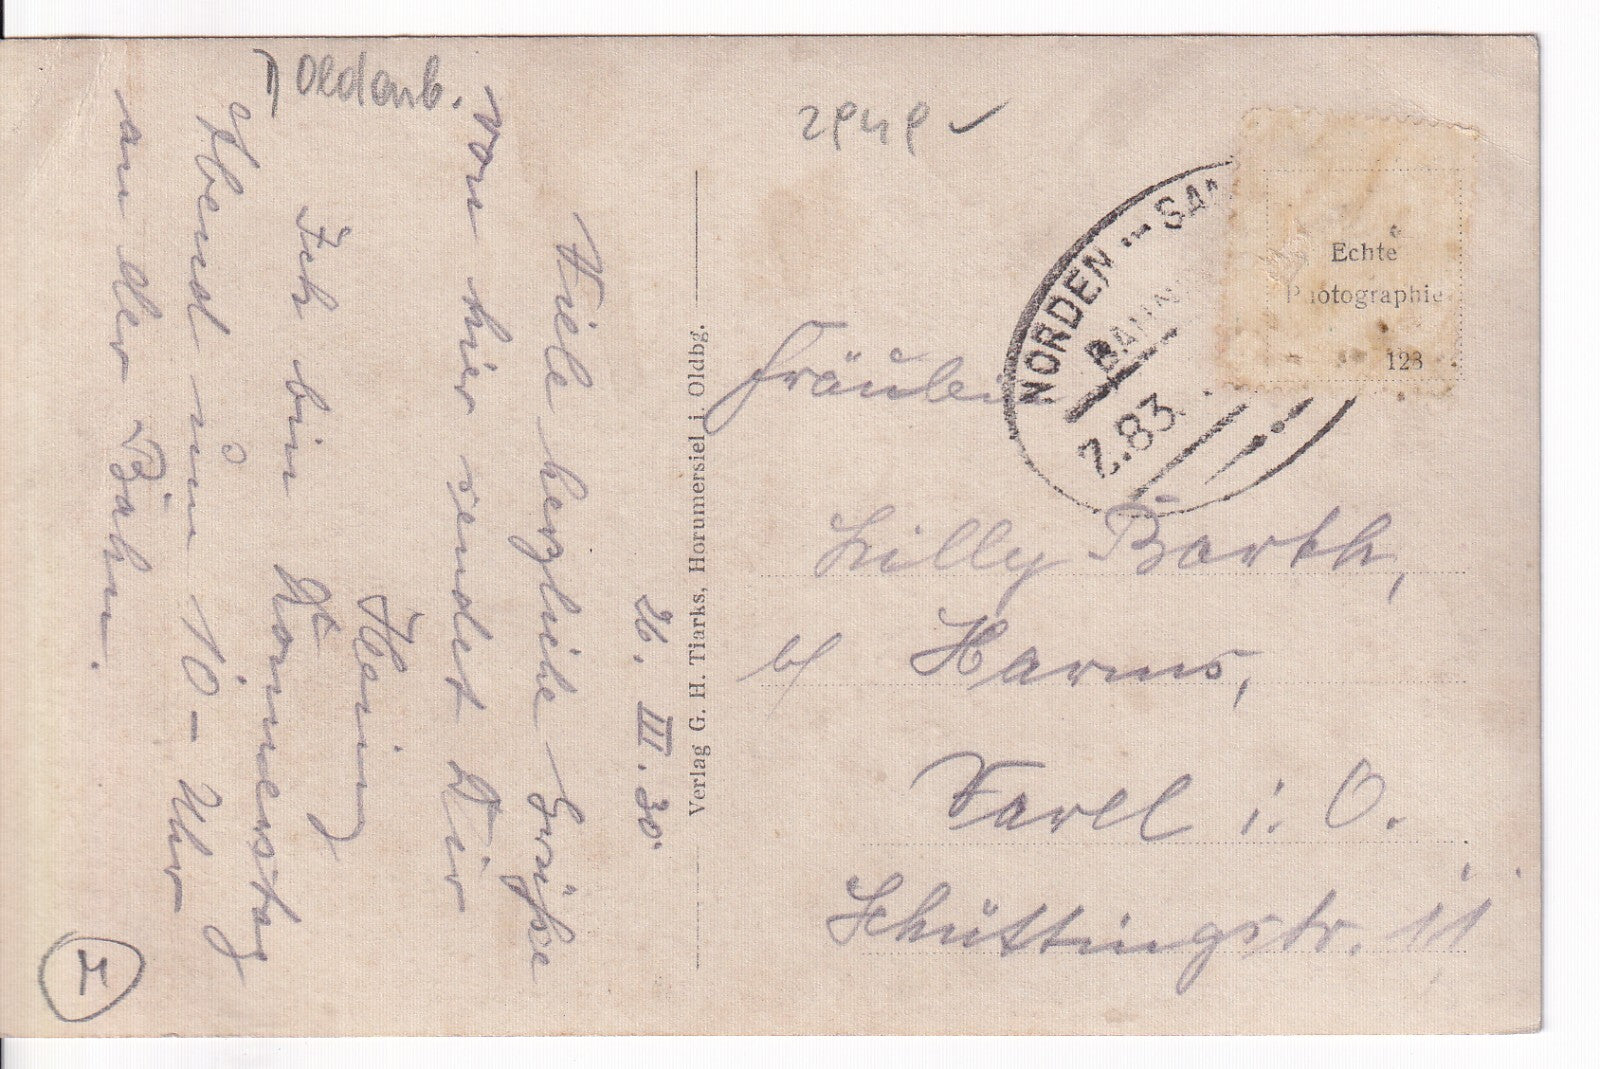 Oldenb.
26. III. 30.
Viele herzliche Grüße
von hier sendet Dir
Ich bin Donnerstag
Abend um 10 - Uhr
an der Bahn.
Verlag G. H. Tiarks, Horumersiel i. Oldbg.
NORDEN
BAHN
Z.83
Echte
Photographie
123
Fräulein
Lilly Barth,
b/ Harms,
Varel i. O.
Schüttingstr. 11